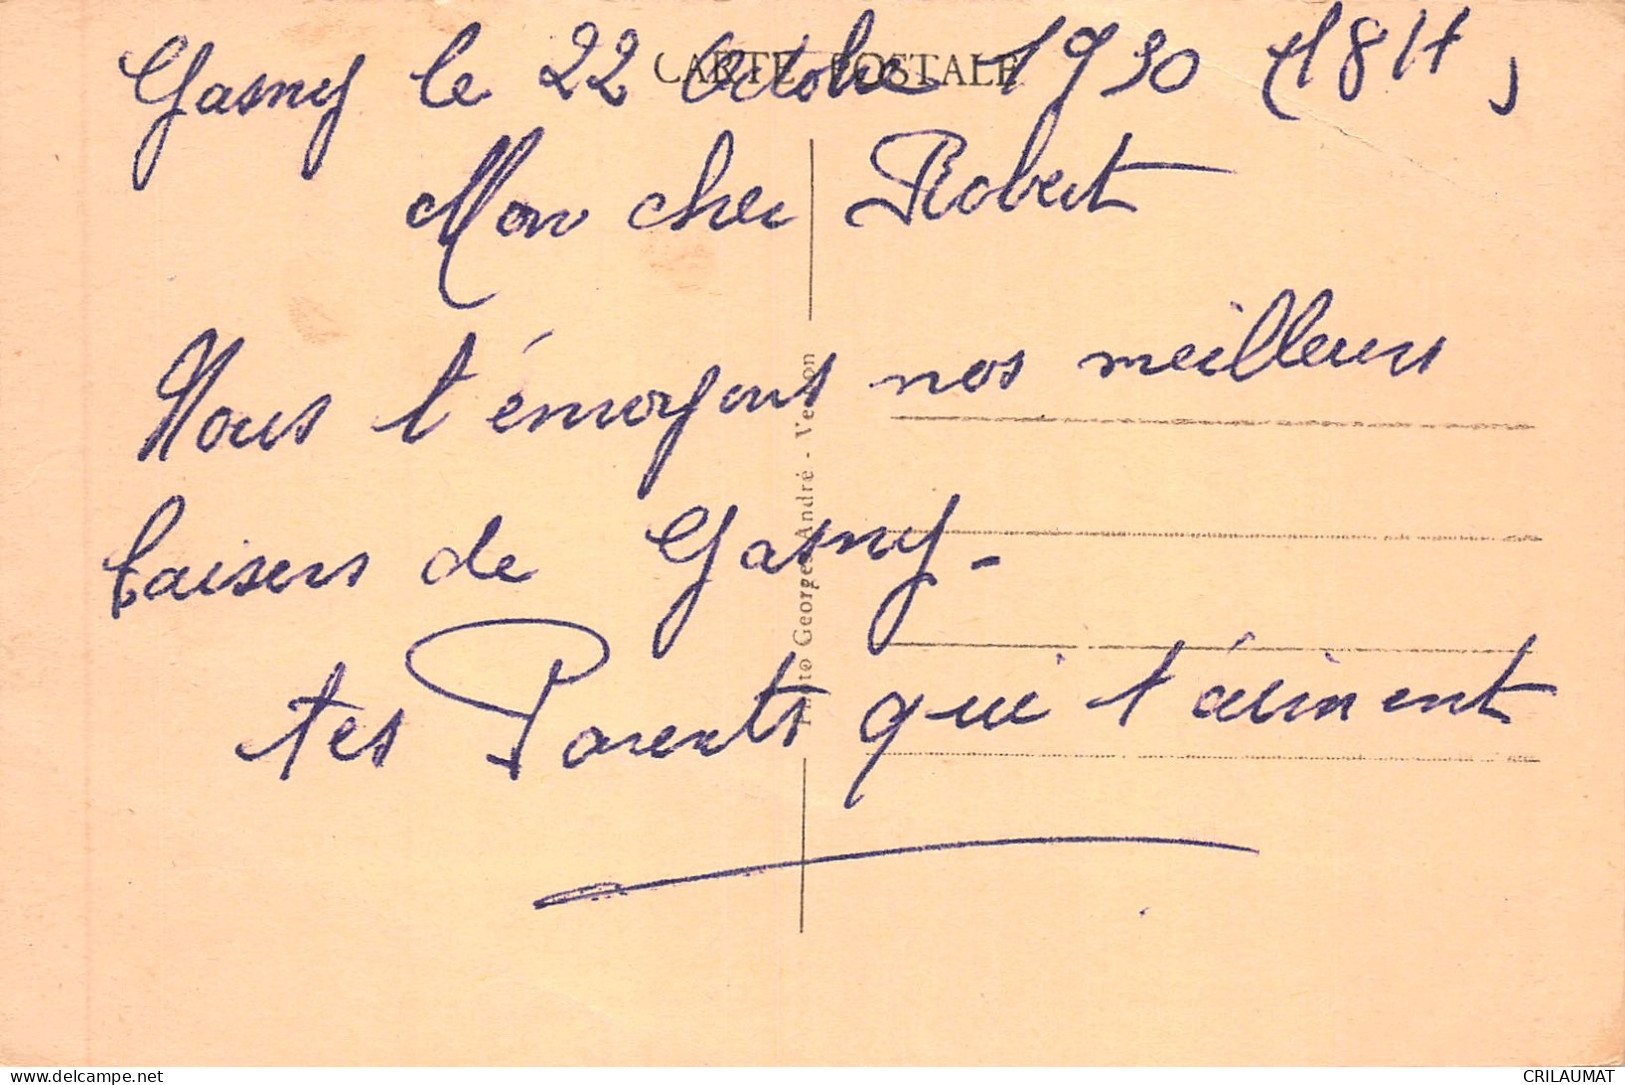 CARTE POSTALE
Gasny le 22 Octobre 1930 (18H)
Mon cher Robert
Nous t'émvoyons nos meilleurs
baisers de Gasny -
tes Parents qui t'aiment
Photo Georges André - Vernon
www.delcampe.net
CRILAUMAT